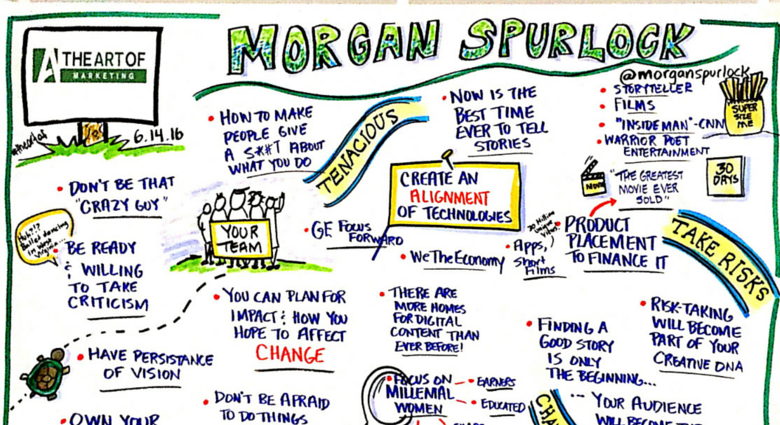 THE ART OF
MARKETING
6.14.16
MORGAN SPURLOCK
@morganspurlock
• STORYTELLER
• FILMS
• "INSIDE MAN"-CNN
• WARRIOR POET
ENTERTAINMENT
SUPER
SIZE
ME
• HOW TO MAKE
PEOPLE GIVE
A S**T ABOUT
WHAT YOU DO
TENACIOUS
• NOW IS THE
BEST TIME
EVER TO TELL
STORIES
MOVIE
"THE GREATEST
MOVIE EVER
SOLD"
30
DAYS
• DON'T BE THAT
"CRAZY GUY"
• BE READY
& WILLING
TO TAKE
CRITICISM
YOUR
TEAM
CREATE AN
ALIGNMENT
OF TECHNOLOGIES
• GE FOCUS
FORWARD
• We The Economy
• Apps,
Short
Films
• PRODUCT
PLACEMENT
TO FINANCE IT
TAKE RISKS
• HAVE PERSISTANCE
OF VISION
• OWN YOUR
• YOU CAN PLAN FOR
IMPACT & HOW YOU
HOPE TO AFFECT
CHANGE
• DON'T BE AFRAID
TO DO THINGS
• THERE ARE
MORE HOMES
FOR DIGITAL
CONTENT THAN
EVER BEFORE!
• FOCUS ON
MILLENIAL
WOMEN
EARNERS
EDUCATED
• FINDING A
GOOD STORY
IS ONLY
THE BEGINNING...
... YOUR AUDIENCE
WILL BECOME THE
• RISK-TAKING
WILL BECOME
PART OF YOUR
CREATIVE DNA